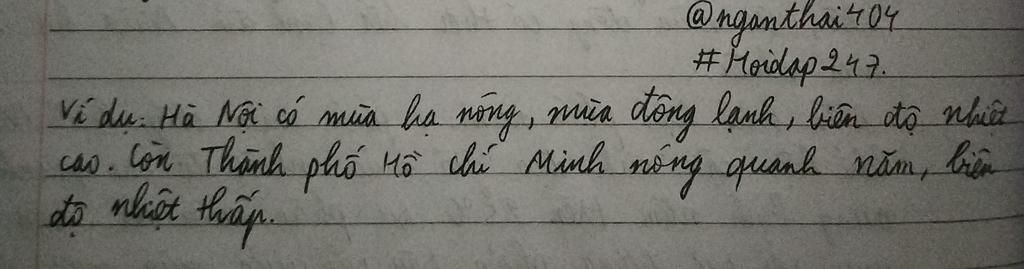 @nganthai404
#Hoidap247.
Ví dụ: Hà Nội có mùa hạ nóng, mùa đông lạnh, biên độ nhiệt
cao. Còn Thành phố Hồ Chí Minh nóng quanh năm, biên
độ nhiệt thấp.